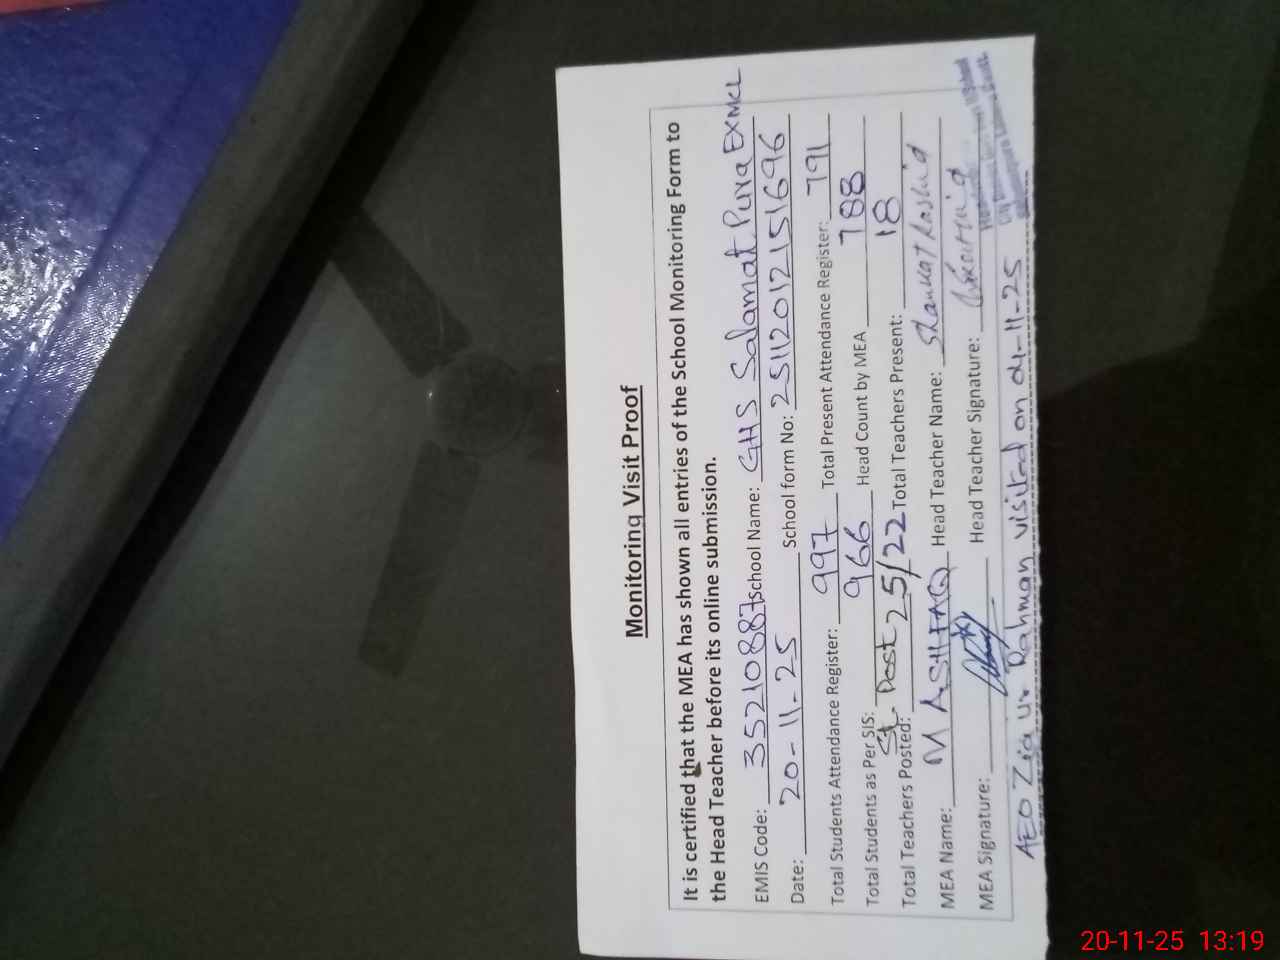 Monitoring Visit Proof
It is certified that the MEA has shown all entries of the School Monitoring Form to
the Head Teacher before its online submission.
EMIS Code: 35210887 School Name: GHS Salamat Pura EX MCL
Date: 20-11-25 School form No: 25112012151696
Total Students Attendance Register: 997 Total Present Attendance Register: 791
Total Students as Per SIS: 966 Head Count by MEA 788
Total Teachers Posted: St. Post 25/22 Total Teachers Present: 18
MEA Name: M ASHFAQ Head Teacher Name: Shaukat Rashid
MEA Signature: Head Teacher Signature:
AEO Zia ur Rahman visited on 04-11-25
20-11-25 13:19